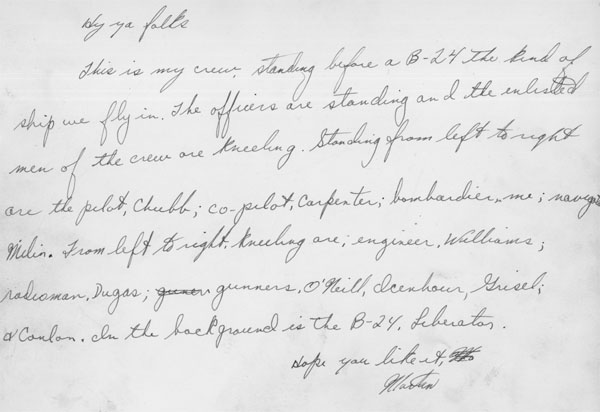 Hy ya folks
This is my crew, standing before a B-24 the kind of
ship we fly in. The officers are standing and the enlisted
men of the crew are kneeling. Standing from left to right
are the pilot, Chubb; co-pilot, Carpenter; bombardier, me; naviga
Milin. From left to right, kneeling are; engineer, Williams;
radioman, Dugas; guner gunners, O'Neill, Icenhour, Grisel;
& Conlon. In the background is the B-24, Liberator.
Hope you like it,
Martin